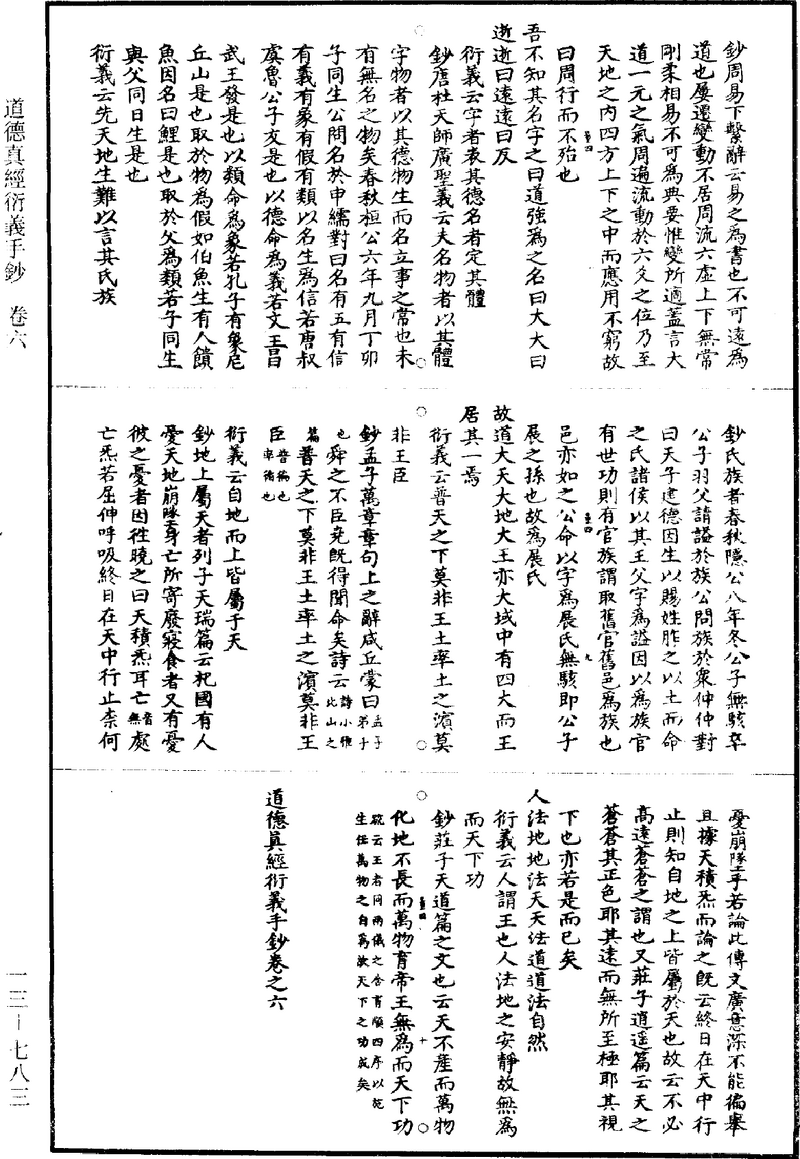 鈔周易下繫辭云易之為書也不可遠為
道也屢遷變動不居周流六虛上下無常
剛柔相易不可為典要惟變所適蓋言大
道一元之氣周遍流動於六爻之位乃至
天地之內四方上下之中而應用不窮故
曰周行而不殆也
吾不知其名字之曰道強為之名曰大大曰
逝逝曰遠遠曰反
衍義云字者表其德名者定其體
鈔唐杜天師廣聖義云夫名物者以其體
字物者以其德物生而名立事之常也未
有無名之物矣春秋桓公六年九月丁卯
子同生公問名於申繻對曰名有五有信
有義有象有假有類以名生為信若唐叔
虞魯公子友是也以德命為義若文王昌
武王發是也以類命為象若孔子有象尼
丘山是也取於物為假如伯魚生有人饋
魚因名曰鯉是也取於父為類若子同生
與父同日生是也
衍義云先天地生難以言其氏族
鈔氏族者春秋隱公八年冬公子無駭卒
公子羽父請謚於族公問族於眾仲仲對
曰天子建德因生以賜姓胙之以土而命
之氏諸侯以其王父字為謚因以為族官
有世功則有官族謂取舊官舊邑為族也
邑亦如之公命以字為展氏無駭即公子
展之孫也故為展氏
故道大天大地大王亦大域中有四大而王
居其一焉
衍義云普天之下莫非王土率土之濱莫
非王臣
鈔孟子萬章章句上之辭咸丘蒙曰孟子弟子
也舜之不臣堯既得聞命矣詩云詩小雅北山之
篇普天之下莫非王土率土之濱莫非王
臣普徧也率循也
衍義云自地而上皆屬于天
鈔地上屬天者列子天瑞篇云杞國有人
憂天地崩墜身亡所寄廢寢食者又有憂
彼之憂者因徃曉之曰天積炁耳亡音無處
亡炁若屈伸呼吸終日在天中行止柰何
憂崩墜乎若論此傳文廣意深不能徧舉
且據天積炁而論之既云終日在天中行
止則知自地之上皆屬於天也故云不必
高遠蒼蒼之謂也又莊子逍遥篇云天之
蒼蒼其正色耶其遠而無所至極耶其視
下也亦若是而已矣
人法地地法天天法道道法自然
衍義云人謂王也人法地之安靜故無為
而天下功
鈔莊子天道篇之文也云天不產而萬物
化地不長而萬物育帝王無為而天下功
疏云王者同兩儀之含育順四序以施
生任萬物之自為故天下之功成矣
道德真經衍義手鈔卷之六
道德真經衍義手鈔　卷六
一三－七八三